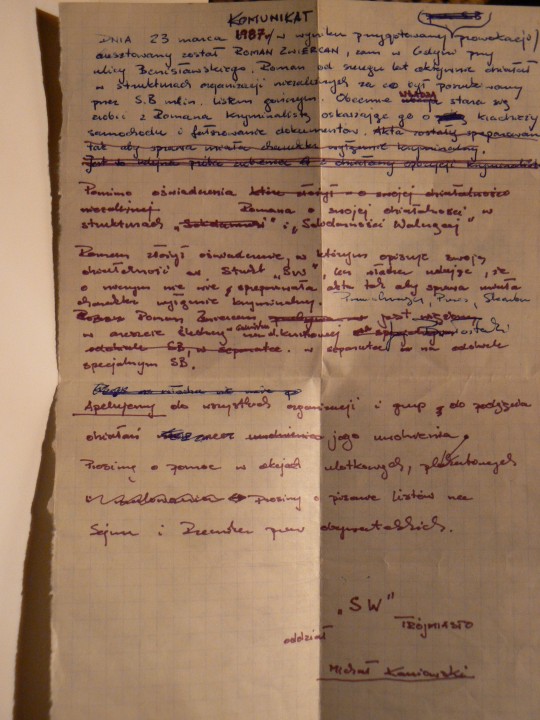 KOMUNIKAT
DNIA 23 marca 1987r w wyniku przygotowanej prowokacji
aresztowany został ROMAN ZWIERCAN, zam w Gdyni przy
ulicy Benisławskiego. Roman od szeregu lat aktywnie działał
w strukturach organizacji niezależnych za co był poszukiwany
przez S.B m.in. listem gończym. Obecnie władza stara się
zrobić z Romana kryminalistę oskarżając go o kradzieży
samochodu i fałszowanie dokumentów. Akta zostały spreparowane
tak aby sprawa miała charakter wyłącznie kryminalny.
Jest to kolejna próba
Pomimo oświadczenia które złożył o swojej działalności
niezależnej Romana o swojej działalności w
strukturach "Solidarność" i "Solidarności Walczącej"
Roman złożył oświadczenie, w którym opisuje swoją
działalność w "SW", lecz władza udając, że
o niczym nie wie spreparowała akta tak aby sprawa miała
charakter wyłącznie kryminalny.
Roman Zwiercan jest
w areszcie śledczym
w separatce na oddziale
specjalnym SB.
Apelujemy do wszystkich organizacji i grup do podjęcia
działań jego uwolnienia.
Prosimy o pomoc w akcjach ulotkowych, plakatowych
Prosimy o pisanie listów na
Sejm i Rzecznika praw obywatelskich.
"SW"
oddział TRÓJMIASTO
Michał Kaniowski